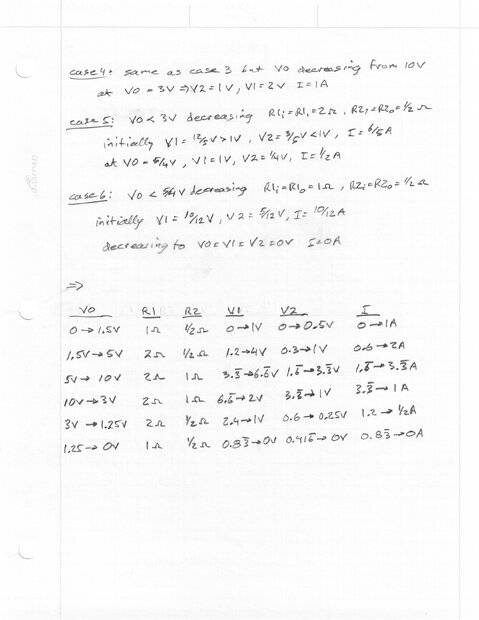 case 4: same as case 3 but V0 decreasing from 10V
at V0 = 3V ⇒ V2 = 1V, V1 = 2V I = 1A
case 5: V0 < 3V decreasing R1i = R1, = 2Ω, R2, = R20 = 1/2 Ω
initially V1 = 12/5 V > 1V, V2 = 3/5 V < 1V, I = 6/5 A
at V0 = 5/4 V, V1 = 1V, V2 = 1/4 V, I = 1/2 A
case 6: V0 < 5/4 V decreasing R1i = R10 = 1Ω, R2i = R20 = 1/2 Ω
initially V1 = 10/12 V, V2 = 5/12 V, I = 10/12 A
decreasing to V0 = V1 = V2 = 0V I = 0A
⇒
V0 R1 R2 V1 V2 I
0 → 1.5V 1Ω 1/2 Ω 0 → 1V 0 → 0.5V 0 → 1A
1.5V → 5V 2Ω 1/2 Ω 1.2 → 4V 0.3 → 1V 0.6 → 2A
5V → 10V 2Ω 1Ω 3.3̅ → 6.6̅V 1.6̅ → 3.3̅V 1.6̅ → 3.3̅A
10V → 3V 2Ω 1Ω 6.6̅ → 2V 3.3̅ → 1V 3.3̅ → 1A
3V → 1.25V 2Ω 1/2 Ω 2.4 → 1V 0.6 → 0.25V 1.2 → 1/2 A
1.25 → 0V 1Ω 1/2 Ω 0.83̅ → 0V 0.416̅ → 0V 0.83̅ → 0A